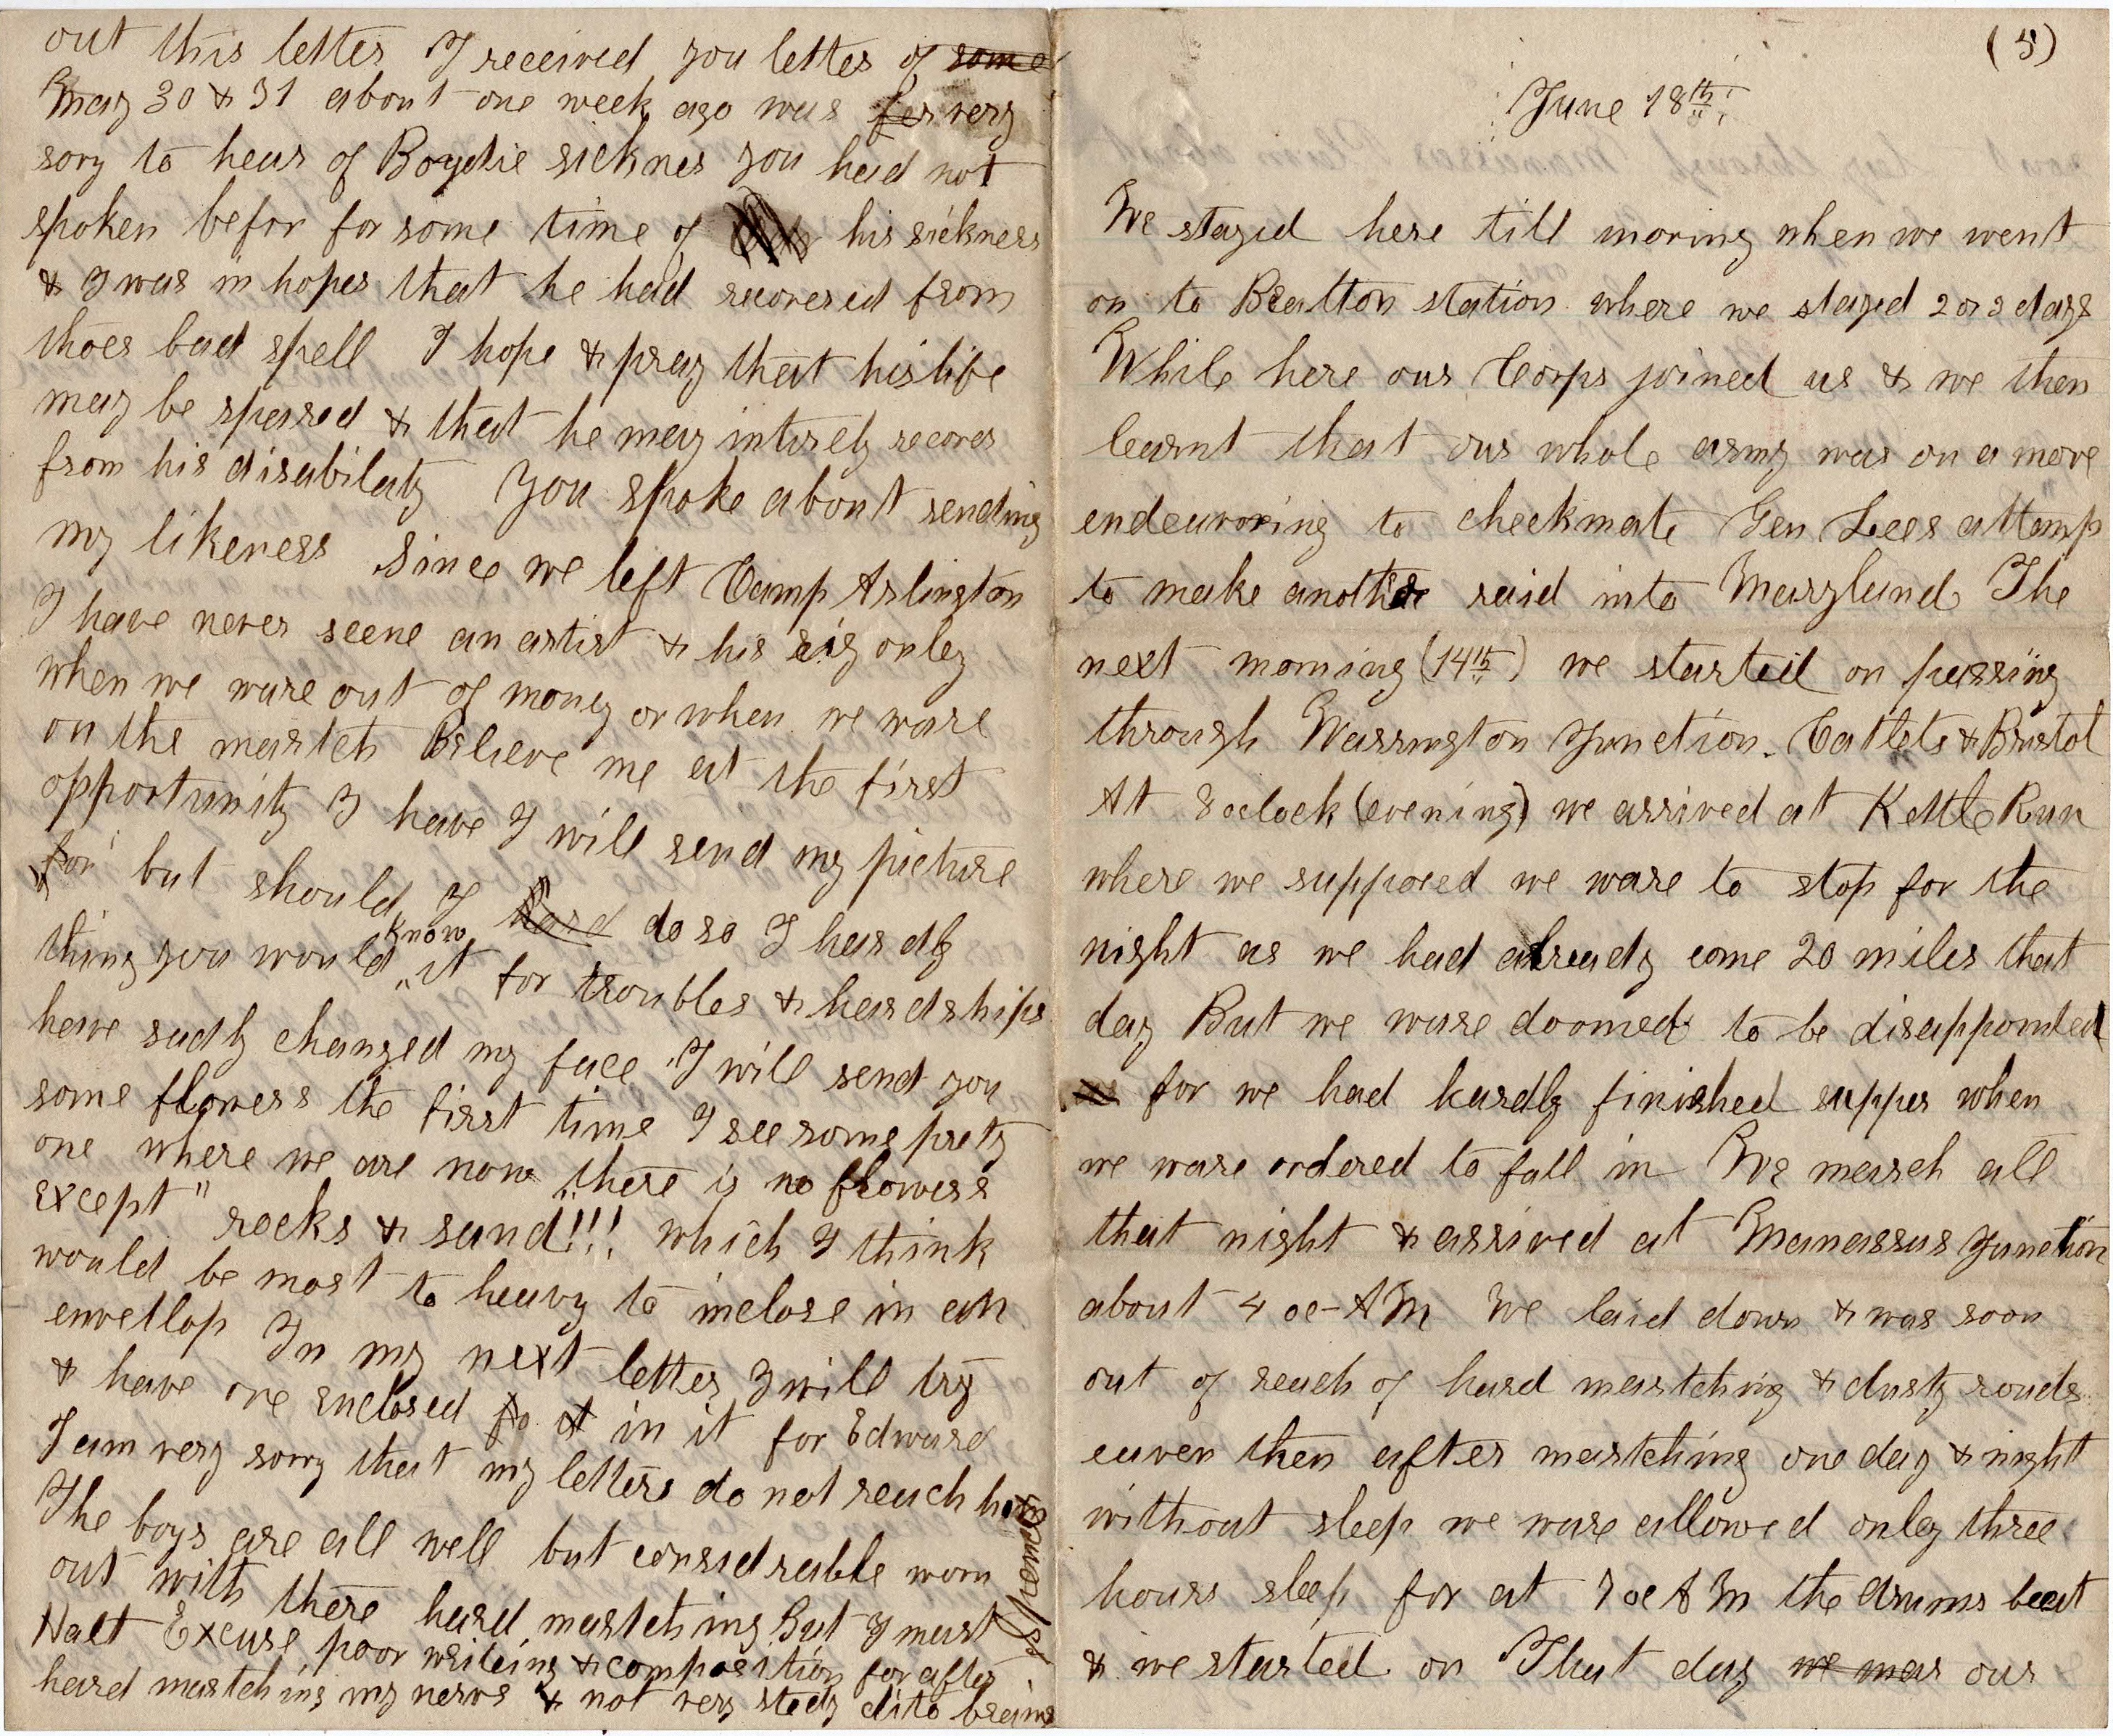 out this letter I received you letter of some
May 30 & 31 about one week ago was fer very
sory to hear of Boydie sicknes you had not
spoken befor for some time of his sickness
& I was in hopes that he had recovered from
thoes bad spell I hope & pray that his life
may be sparred & that he may intirely recover
from his disabilaty You spoke about sending
my likeness Since we left Camp Arlington
I have never seene an artist & his rig onley
when we ware out of money or when we ware
on the martch Believe me at the first
opportunity I have I will send my picture
for but should I hard do so I hardly
thing you would know it for troubles & hardships
have sadly changed my face I will send you
some flowers the first time I see some prety
one where we are now there is no flowers
except " rocks & sand!!! which I think
would be most to heavy to inclose in an
envellop In my next letter I will try
& have one enclosed fo at in it for Edward
I am very sorry that my letters do not reach
The boys are all well but considrable worn
out with there hard martching But I must
Halt Excuse poor writeing & composition for after
hard martching my nervs & not very stedy dito brains
JSpencer
(5)
June 18th
We stayed here till moring when we went
on to Bealtton station where we stayed 2 or 3 days
While here our Corps joined us & we then
learnt that our whole army was on a move
endeavoring to checkmate Gen Lees attemp
to make another raid into Maryland The
next morning (14th) we started on passing
through Warrington Junction. Catlets & Bristol
At 8 oclock (evening) we arrived at Kettle Run
where we supposed we ware to stop for the
night as we had already come 20 miles that
day But we ware doomed to be disappointed
for we had hardly finished supper when
we ware ordered to fall in We march all
that night & arrived at Manassas Junction
about 4 oc-AM We laid down & was soon
out of reach of hard martching & dusty roads
eaven then after martching one day & night
without sleep we ware allowed onley three
hours sleep for at 7 oc AM the drums beat
& we started on That day we mar our